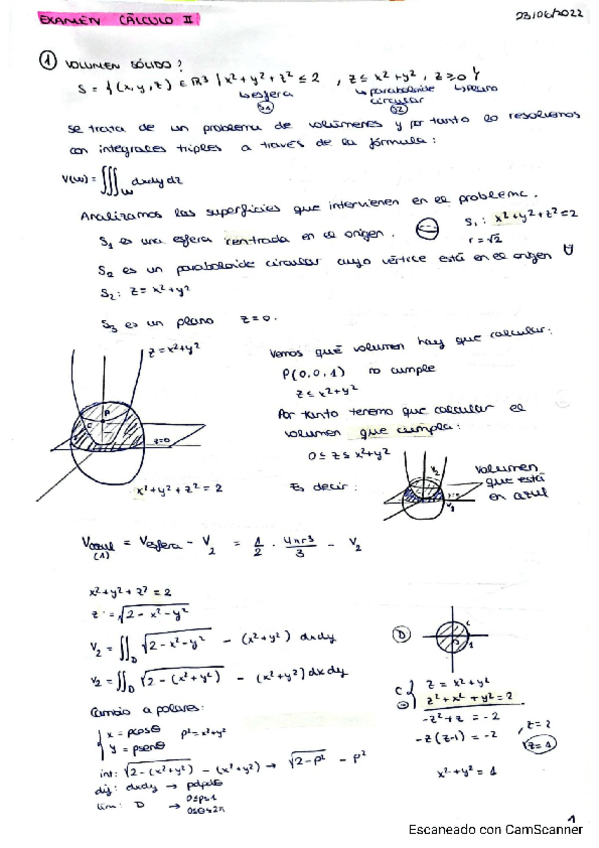 EXAMEN CÁLCULO II
23/06/2022
① VOLUMEN SÓLIDO?
S = {(x,y,z) ∈ R3 / x²+y²+z² ≤ 2 , z ≤ x²+y² , z ≥ 0 }
↳ esfera ↳ paraboloide circular ↳ plano
S1 S2
Se trata de un problema de volúmenes y por tanto lo resolvemos
con integrales triples a través de la fórmula:
V(w) = ∭w dxdydz
Analizamos las superficies que intervienen en el problema.
S1 es una esfera centrada en el origen.
S1: x²+y²+z²=2
r=√2
S2 es un paraboloide circular cuyo vértice está en el origen
S2: z = x²+y²
S3 es un plano z=0.
z=x²+y²
P
C
z=0
x²+y²+z²=2
Vemos qué volumen hay que calcular:
P(0,0,1) no cumple
z ≤ x²+y²
Por tanto tenemos que calcular el
volumen que cumpla:
0 ≤ z ≤ x²+y²
Es decir:
V2
V1
volumen
que está
en azul
Vazul = Vesfera - V2 = 1/2 · 4πr³/3 - V2
(1)
x²+y²+z²=2
z = √2-x²-y²
V2 = ∬D √2-x²-y² - (x²+y²) dxdy
V2 = ∬D √2-(x²+y²) - (x²+y²) dxdy
Cambio a polares:
{ x = ρcosθ ρ²=x²+y²
y = ρsenθ
int: √2-(x²+y²) - (x²+y²) → √2-ρ² - ρ²
dif: dxdy → ρdρdθ
lim: D → 0≤ρ≤1
0≤θ≤2π
D
C
D
1
C { z = x²+y²
z²+x²+y²=2
-z²+z = -2
-z(z-1) = -2
, z=2
z=1
x²+y²=1
1
Escaneado con CamScanner